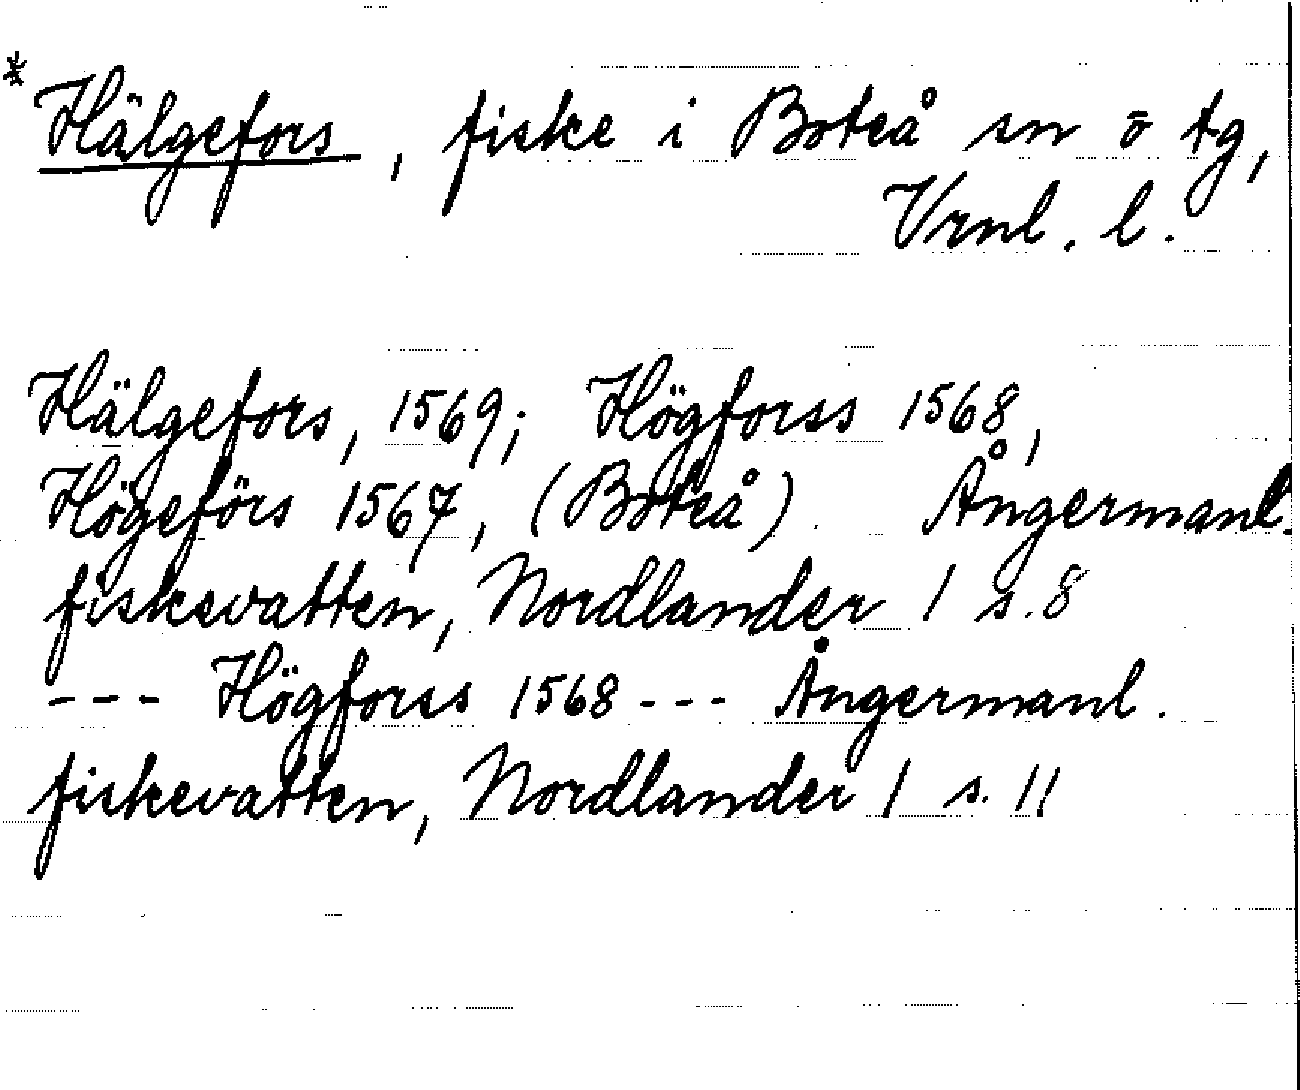 * Hälgefors, fiske i Boteå sn ö tg,
Vrnl. l.
Hälgefors, 1569; Högforss 1568,
Högeförs 1567, (Boteå). Ångermanl.
fiskevatten, Nordlander 1 s. 8
--- Högforss 1568 --- Ångermanl.
fiskevatten, Nordlander 1 s. 11